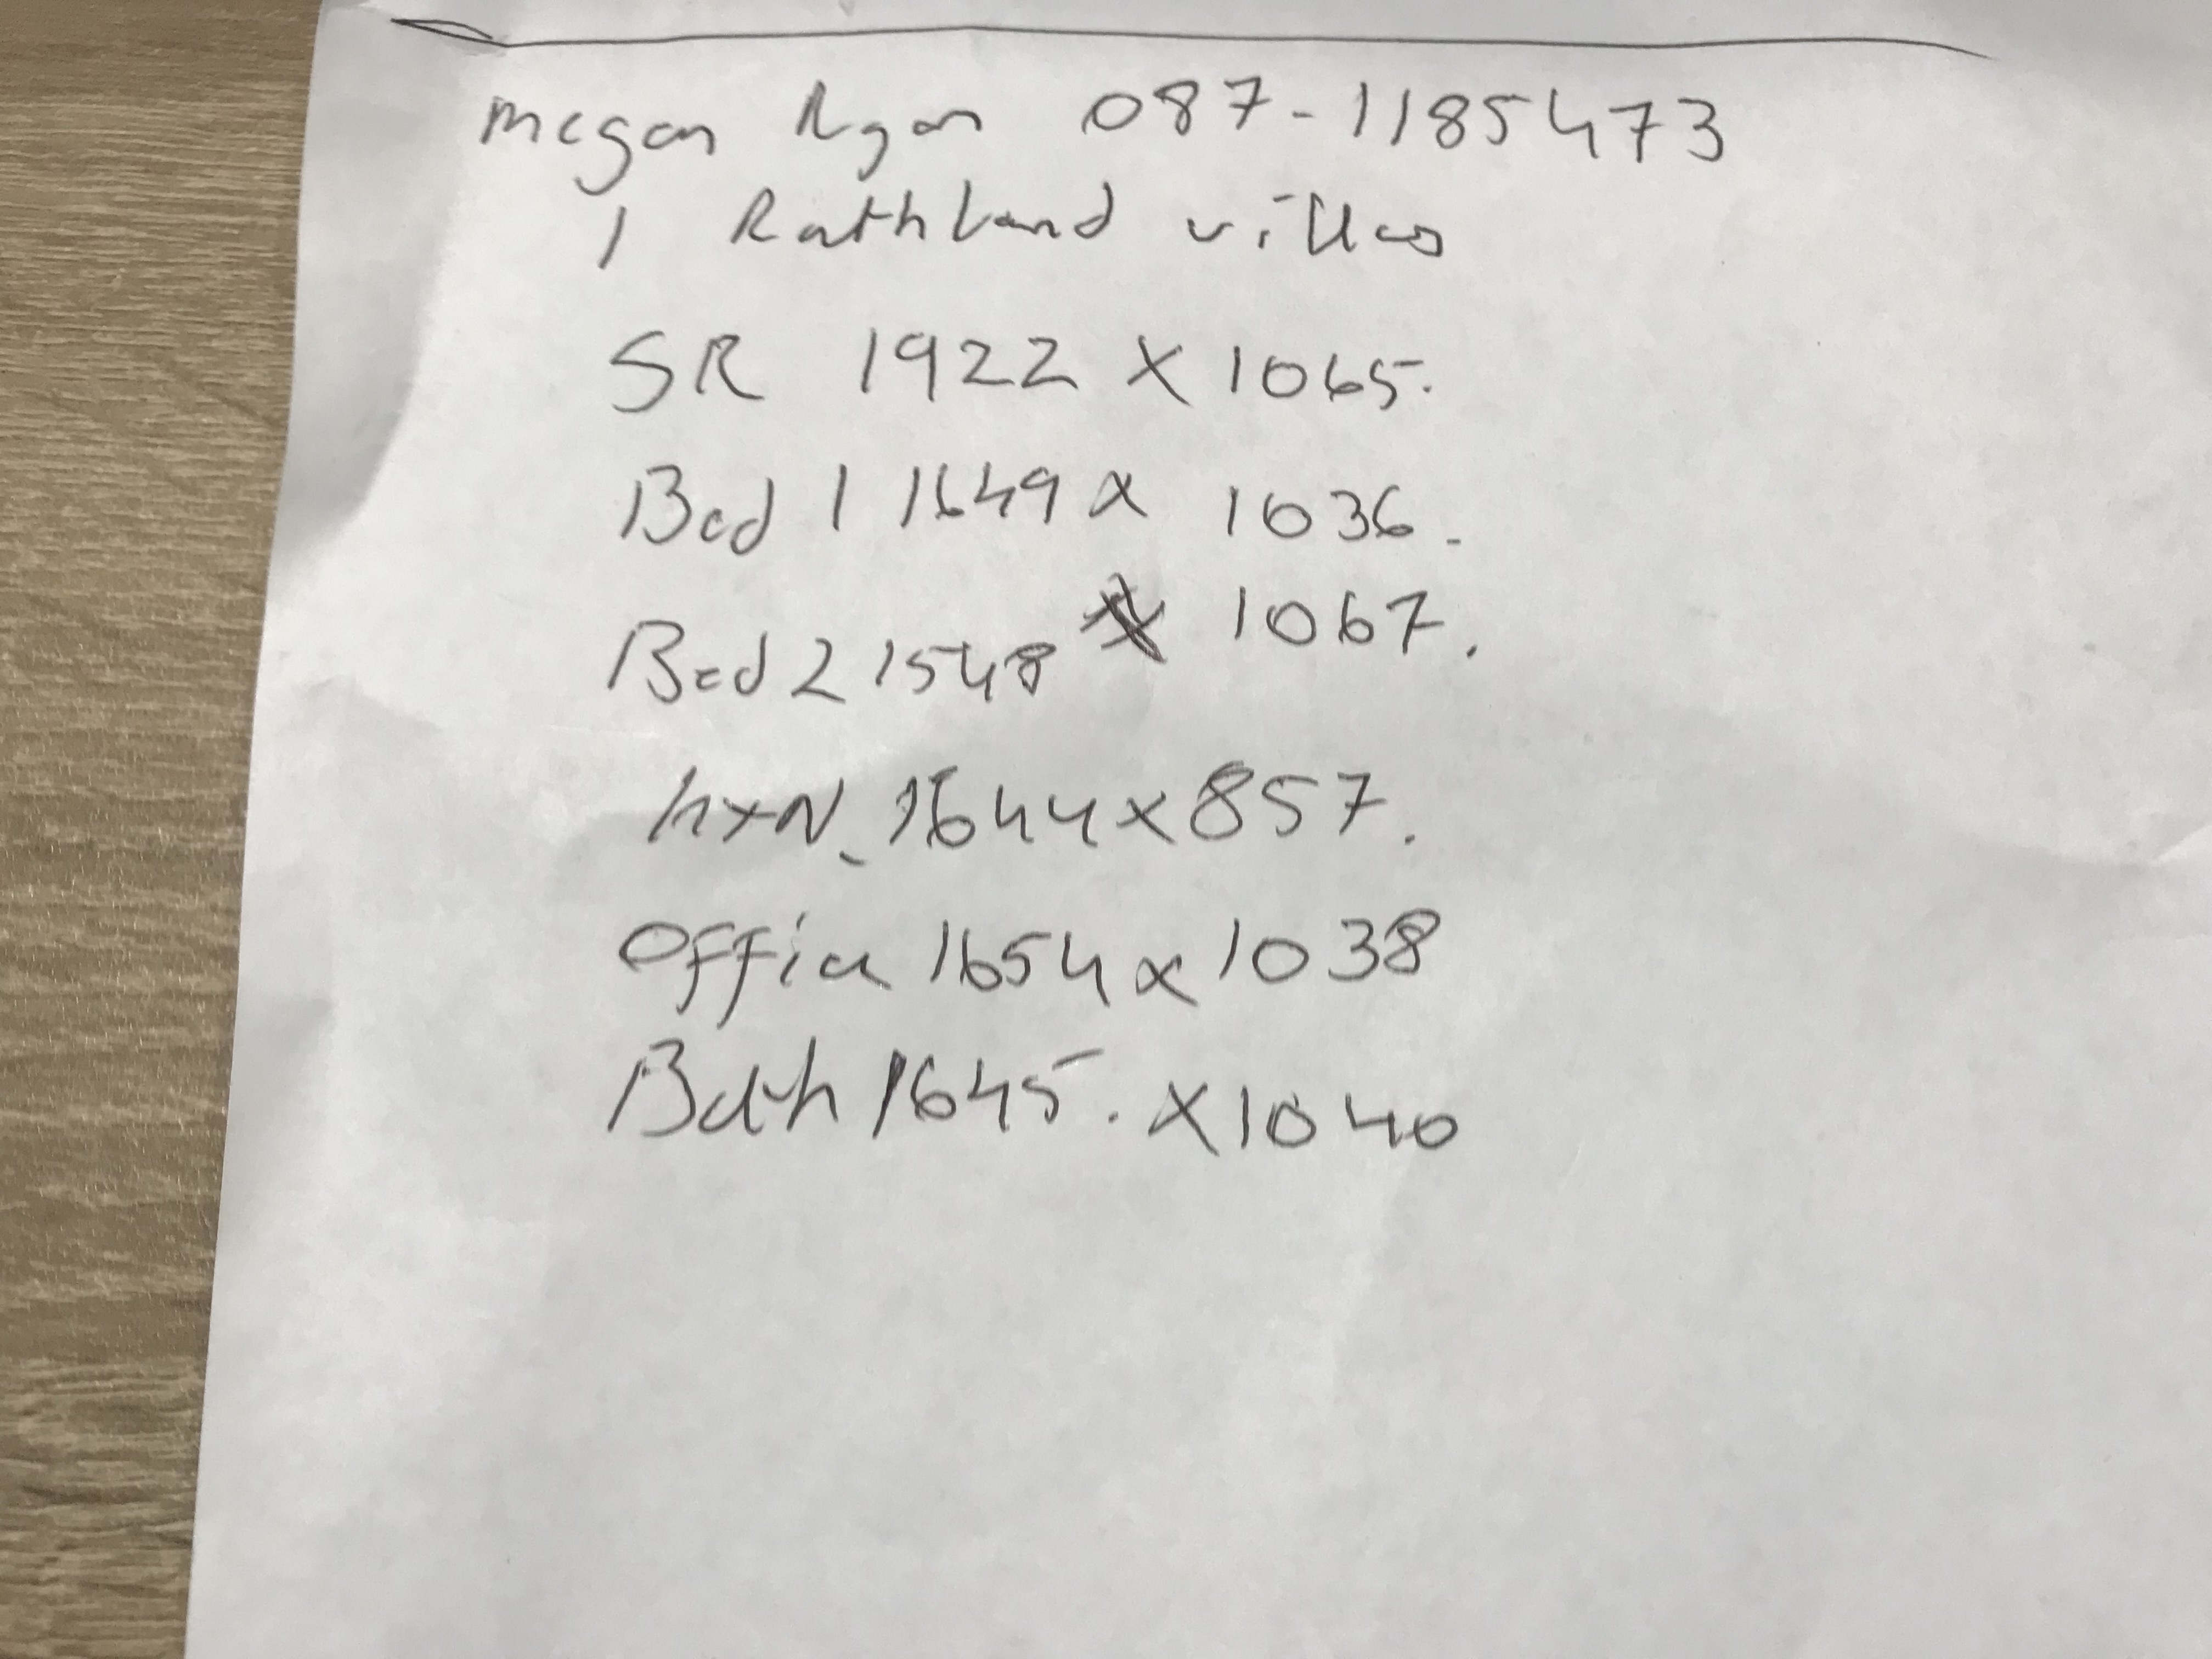 Megan Ryan 087-1185473
1 Rathland villas
SR 1922 X 1065.
Bed 1 1649 x 1036.
Bed 2 1548 x 1067.
1644 x 857.
Office 1654 x 1038
Bath 1645. X 1040